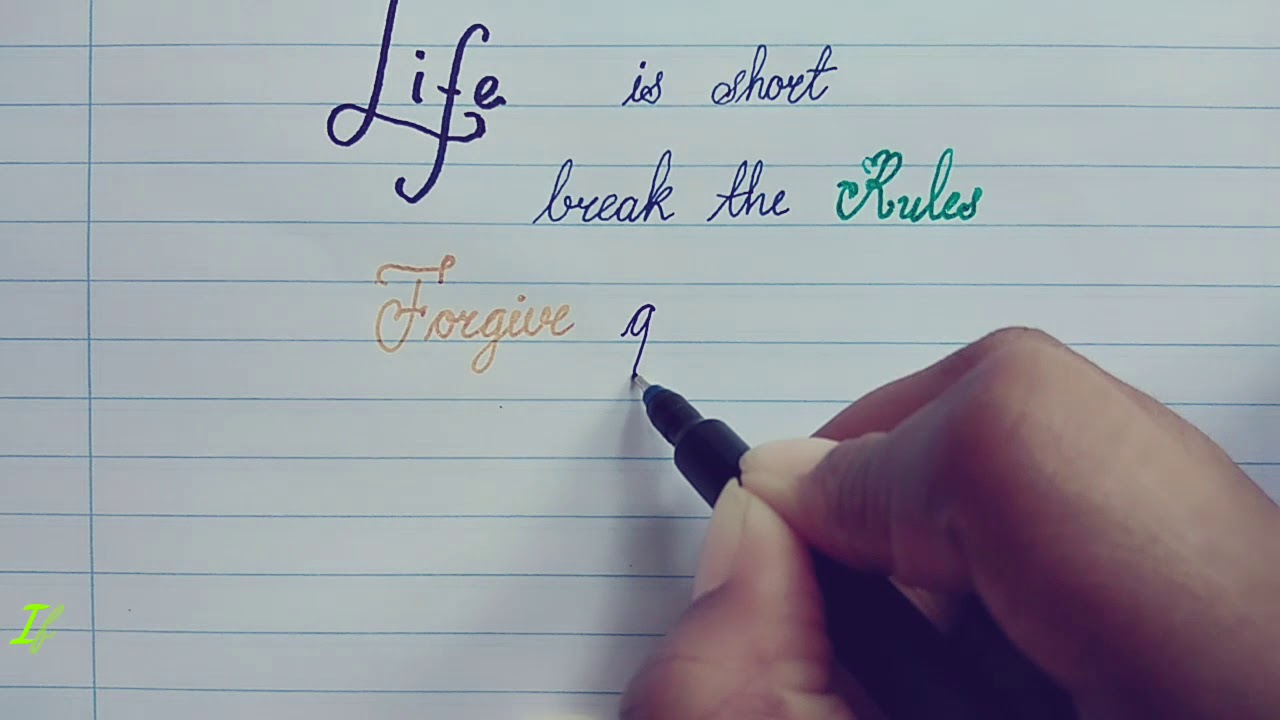 Life is short
break the Rules
Forgive q
If